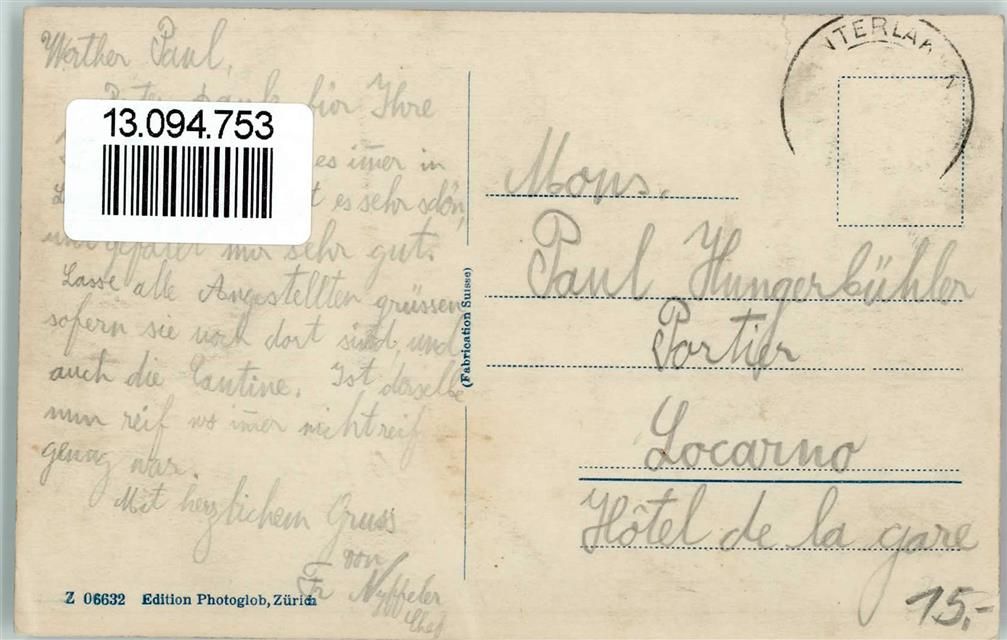 Werther Paul,
Dank für Ihre
13.094.753
es imer in
es sehr schön,
und gefällt mir sehr gut.
Lasse alle Angestellten grüssen
sofern sie noch dort sind, und
auch die Cantine. Ist derselbe
nun reif wo imer nicht reif
genug war.
Mit herzlichem Gruss
von
Fr. Nyffeler
Chef
Z 06632 Edition Photoglob, Zürich
(Fabrication Suisse)
INTERLAKEN
Mons.
Paul Hungerbühler
Portier
Locarno
Hôtel de la gare
15.-